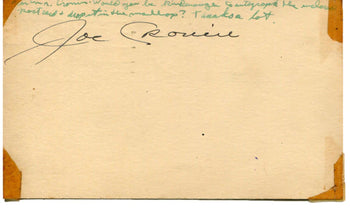 Mr. Cronin: Would you be kind enough to autograph the
postcard & drop it in the mail box? Thanks a lot
Joe Cronin